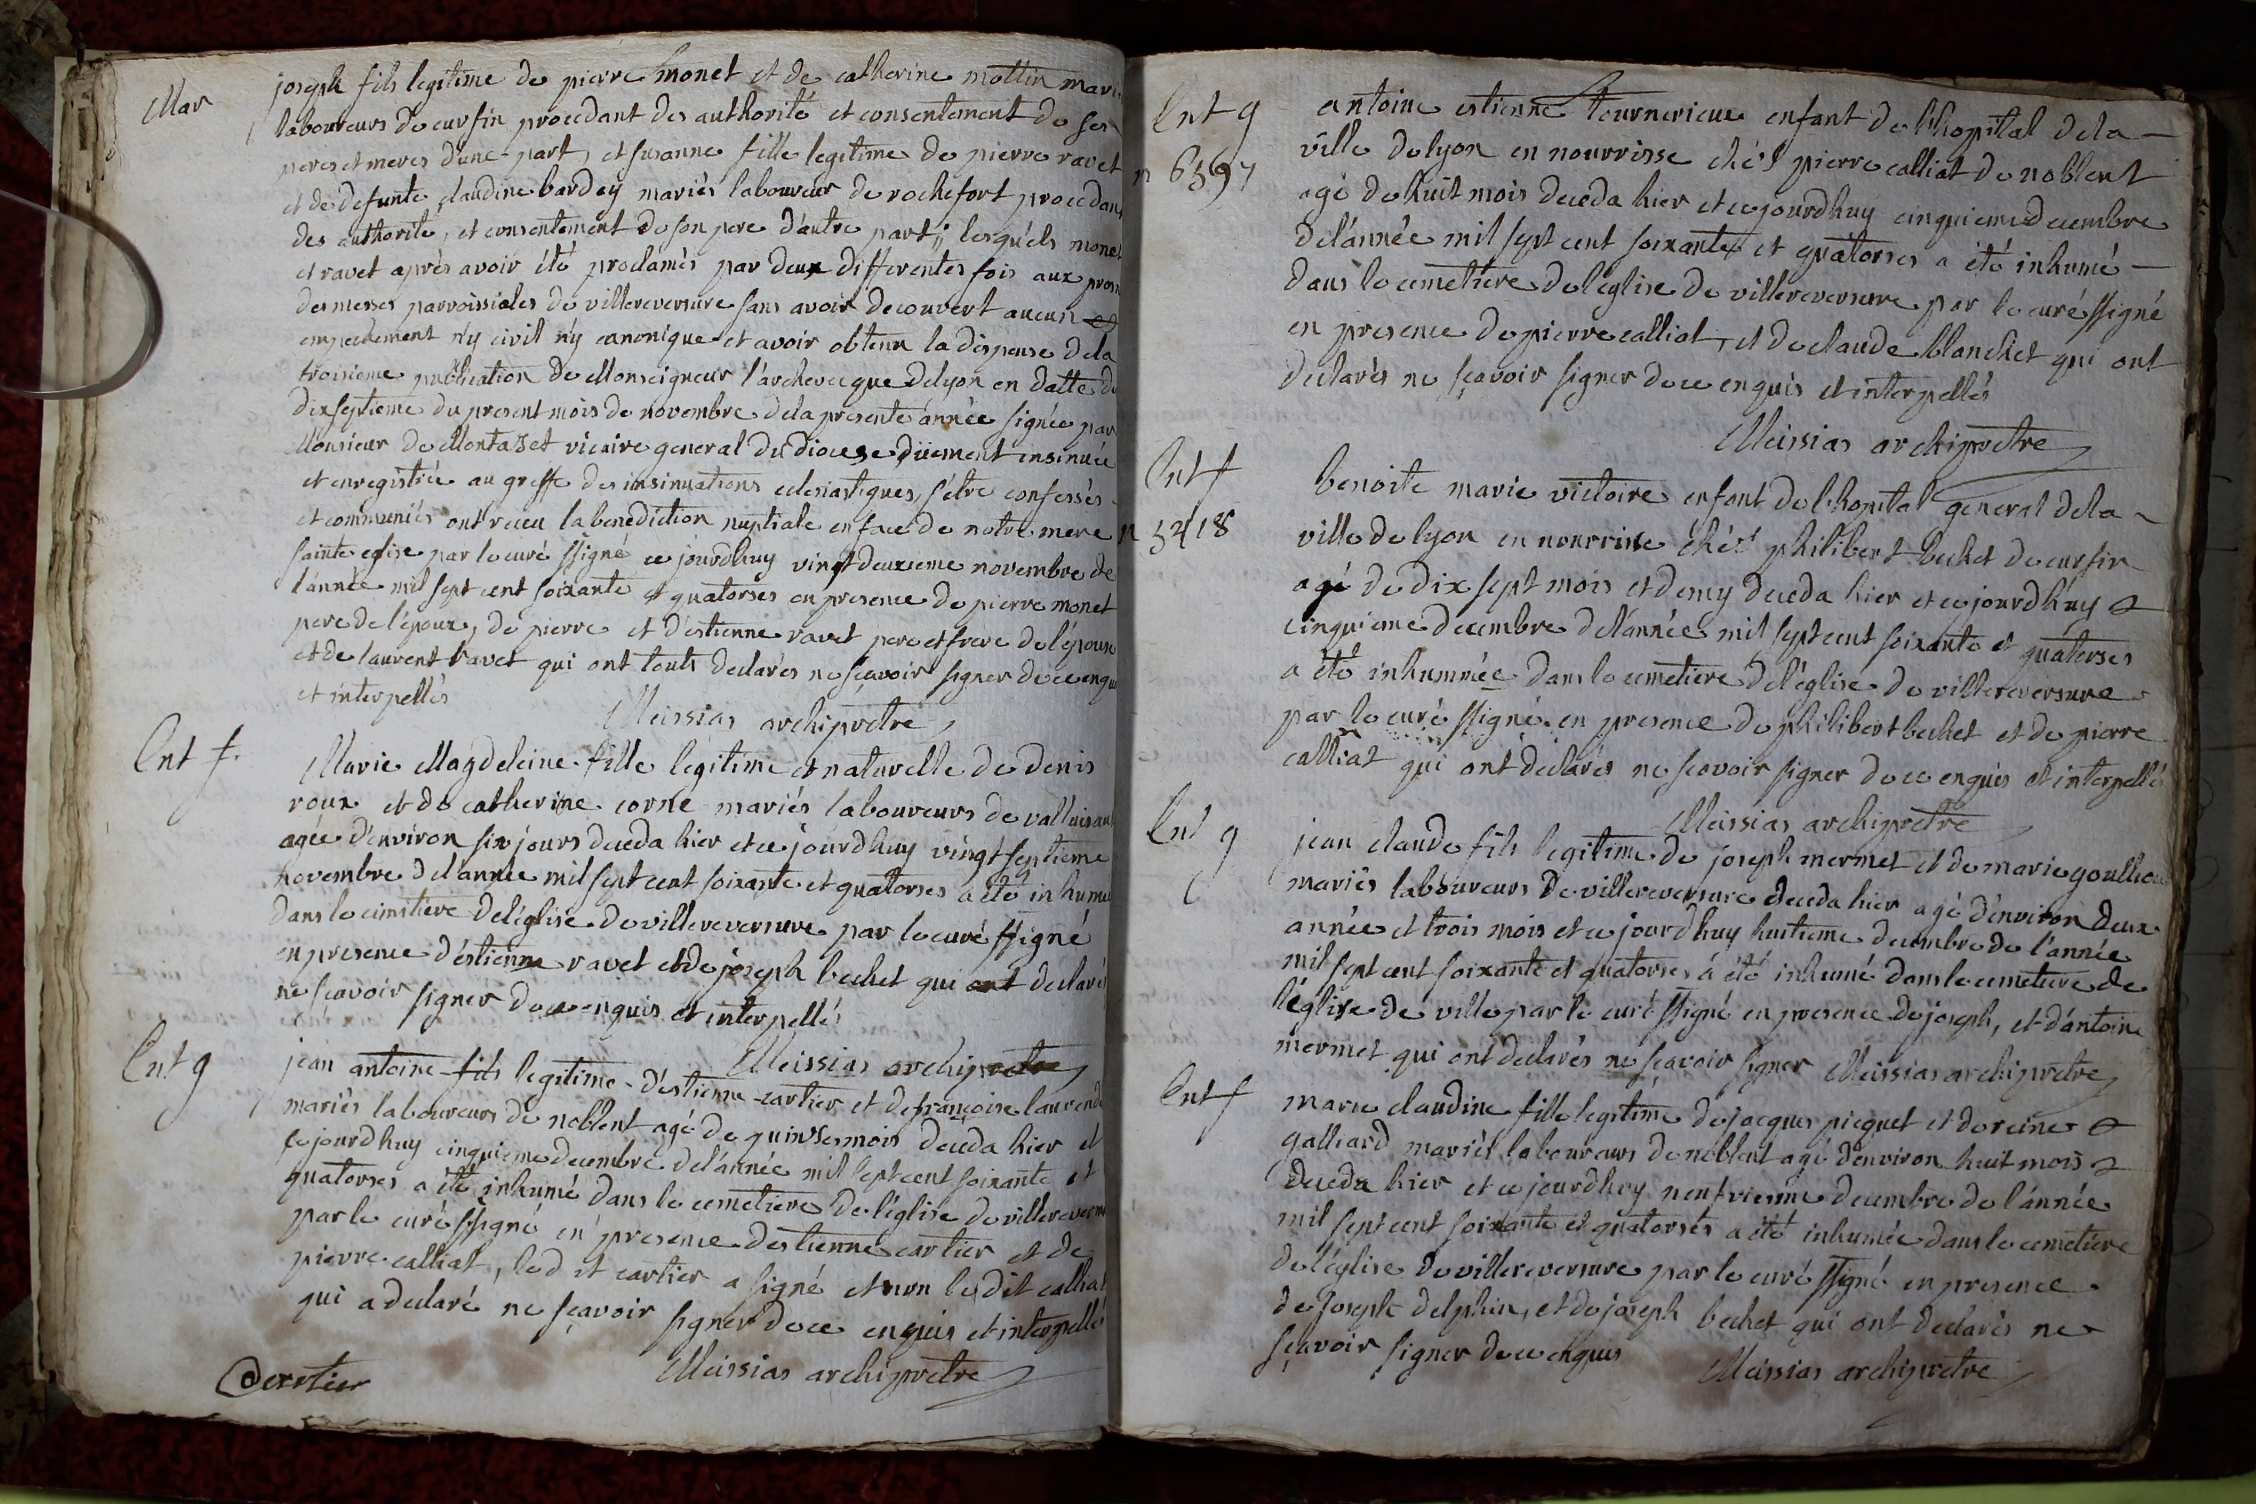 Mar
joseph fils legitime de pierre monet et de catherine mottin mari
laboureurs de curfin procedant des authorité et consentement de ses
peres et meres d'une part, et susanne fille legitime de pierre ravet
et de defunte claudine bardey mariés laboureur de rochefort procedant
des authorité, et consentement de son pere d'autre part; lesquels monet
et ravet après avoir été proclamés par deux differentes fois aux prosn
des messes parroissiales de villereversure sans avoir decouvert aucun
empechement n'y civil n'y canonique et avoir obtenu la dispense de la
troisieme publication de Monseigneur l'archeveque de lyon en datte du
dixseptieme du present mois de novembre de la presente année signée par
Monsieur de Montazet vicaire general du diocese düement insinuée
et enregistrée au greffe des insinuations eclesiastiques, s'être confessés
et communiés ont receu la benediction nuptiale en face de notre mere
sainte eglise par le curé ssigné ce jourdhuy vingt deuxieme novembre de
l'année mil sept cent soixante et quatorses en presence de pierre monet
pere de l'époux, de pierre et d'éstienne ravet pere et frere de l'épouse
et de laurent ravet qui ont touts declarés ne sçavoir signer de ce enquis
et interpellés
Meissias archiprêtre
Ent f.
Marie Magdeleine fille légitime et naturelle de denis
roux et de catherine corne mariés laboureurs de valluisan
agée d'environ six jours deceda hier et ce jourdhuy vingt septieme
novembre de l'année mil sept cent soixante et quatorses a été inhumé
dans le cimitiere de l'église de villereversure par le curé ssigné
en presence d'éstienne ravet et de joseph bechet qui ont declarés
ne sçavoir signer de ce enquis et interpellés
Meissias archiprêtre
Ent g
jean antoine fils legitime d'éstienne cartier et de françoise laurend
mariés laboureurs de noblent agé de quinse mois deceda hier et
ce jourdhuy cinquieme decembre de l'année mil sept cent soixante et
quatorses a été inhumé dans le cemetiere de l'église de villereversure
par le curé ssigné en presence d'estienne cartier et de
pierre calliat, led it cartier a signé et non le dit calliat
qui a declaré ne sçavoir signer de ce enquis et interpellé
Meissias archiprêtre
Ent g
n 6597
antoine estienne tournerieux enfant de l'hopital de la
ville de lyon en nourrisse chés pierre calliat de noblent
agé de huit mois deceda hier et ce jourdhuy cinquieme decembre
de l'année mil sept cent soixante et quatorses a été inhumé
dans le cemetiere de l'eglise de villereversure par le curé ssigné
en presence de pierre calliat, et de claude blanchet qui ont
declarés ne sçavoir signer de ce enquis et interpellés
Meissias archiprêtre
Ent f
n 5218
benoite marie victoire enfant de l'hopital general de la
ville de lyon en nourrisse chés philibert bechet de curfin
agé de dix sept mois et demy deceda hier et ce jourdhuy
cinquieme decembre de l'année mil sept cent soixante et quatorses
a été inhummée dans le cemetiere de l'église de villereversure
par le curé ssigné en presence de philibert bechet et de pierre
calliat qui ont declarés ne sçavoir signer de ce enquis et interpellés
Meissias archiprêtre
Ent g
jean claude fils legitime de joseph mermet et de marie
mariés laboureurs de villereversure deceda hier agé d'environ deux
année et trois mois et ce jourdhuy huitieme decembre de l'année
mil sept cent soixante et quatorses a été inhumé dans le cemetiere de
l'église de ville par le curé ssigné en presence de joseph, et d'antoine
mermet qui ont declarés ne sçavoir signer Meissias archiprêtre
Ent f
marie claudine fille legitime de jacques picquet et de reine
galliard mariés laboureurs de noblent agé d'environ huit mois
deceda hier et ce jourdhuy neufvieme decembre de l'année
mil sept cent soixante et quatorses a été inhumée dans le cemetiere
de l'église de villereversure par le curé ssigné en presence
de joseph delphin, et de joseph bechet qui ont declarés ne
sçavoir signer de ce enquis
Meissias archiprêtre